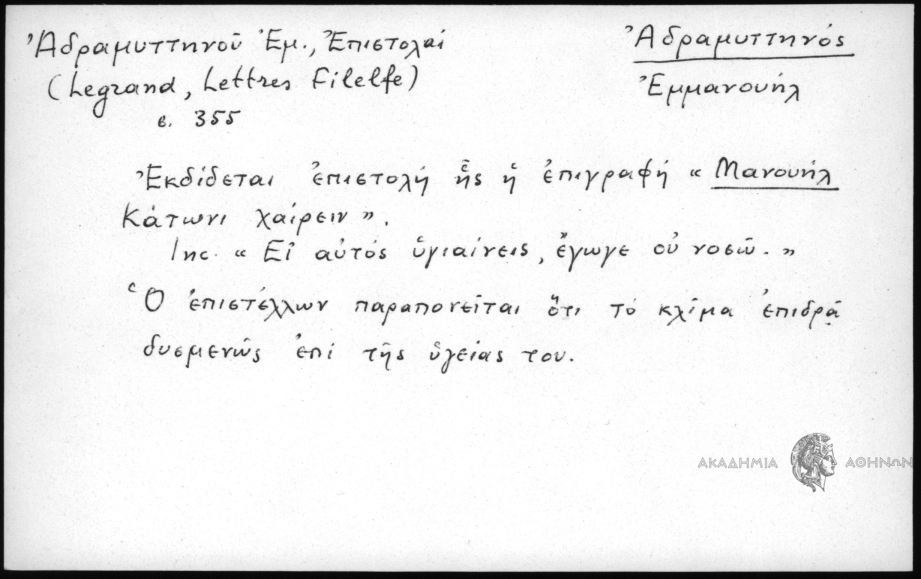 Ἀδραμυττηνοῦ Ἐμ., Ἐπιστολαί
(Legrand, Lettres Filelfe)
σ. 355
Ἀδραμυττηνός
Ἐμμανουήλ
Ἐκδίδεται ἐπιστολή ἧς ἡ ἐπιγραφή « Μανουήλ
Κάτωνι χαίρειν ».
Inc. « Εἰ αὐτός ὑγιαίνεις, ἔγωγε οὐ νοσῶ. »
Ὁ ἐπιστέλλων παραπονεῖται ὅτι τό κλίμα ἐπιδρᾷ
δυσμενῶς ἐπί τῆς ὑγείας του.
ΑΚΑΔΗΜΙΑ ΑΘΗΝΩΝ